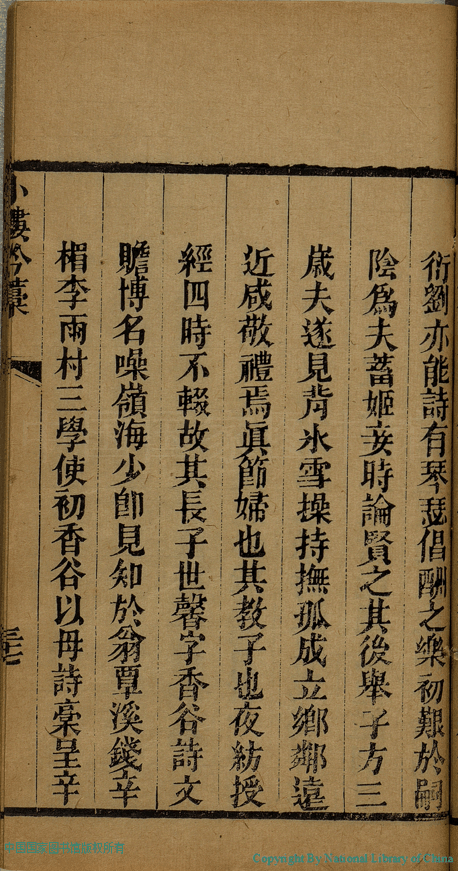 衍劉亦能詩有琴瑟倡酬之樂初艱於嗣
陰爲夫蓄姬妾時論賢之其後舉子方三
歲夫遂見背氷雪操持撫孤成立鄉鄰遠
近咸敬禮焉眞節婦也其教子也夜紡授
經四時不輟故其長子世馨字香谷詩文
贍博名噪嶺海少卽見知於翁覃溪錢辛
楣李雨村三學使初香谷以母詩稾呈辛
小樓吟藁
三七
Copyright By National Library of China